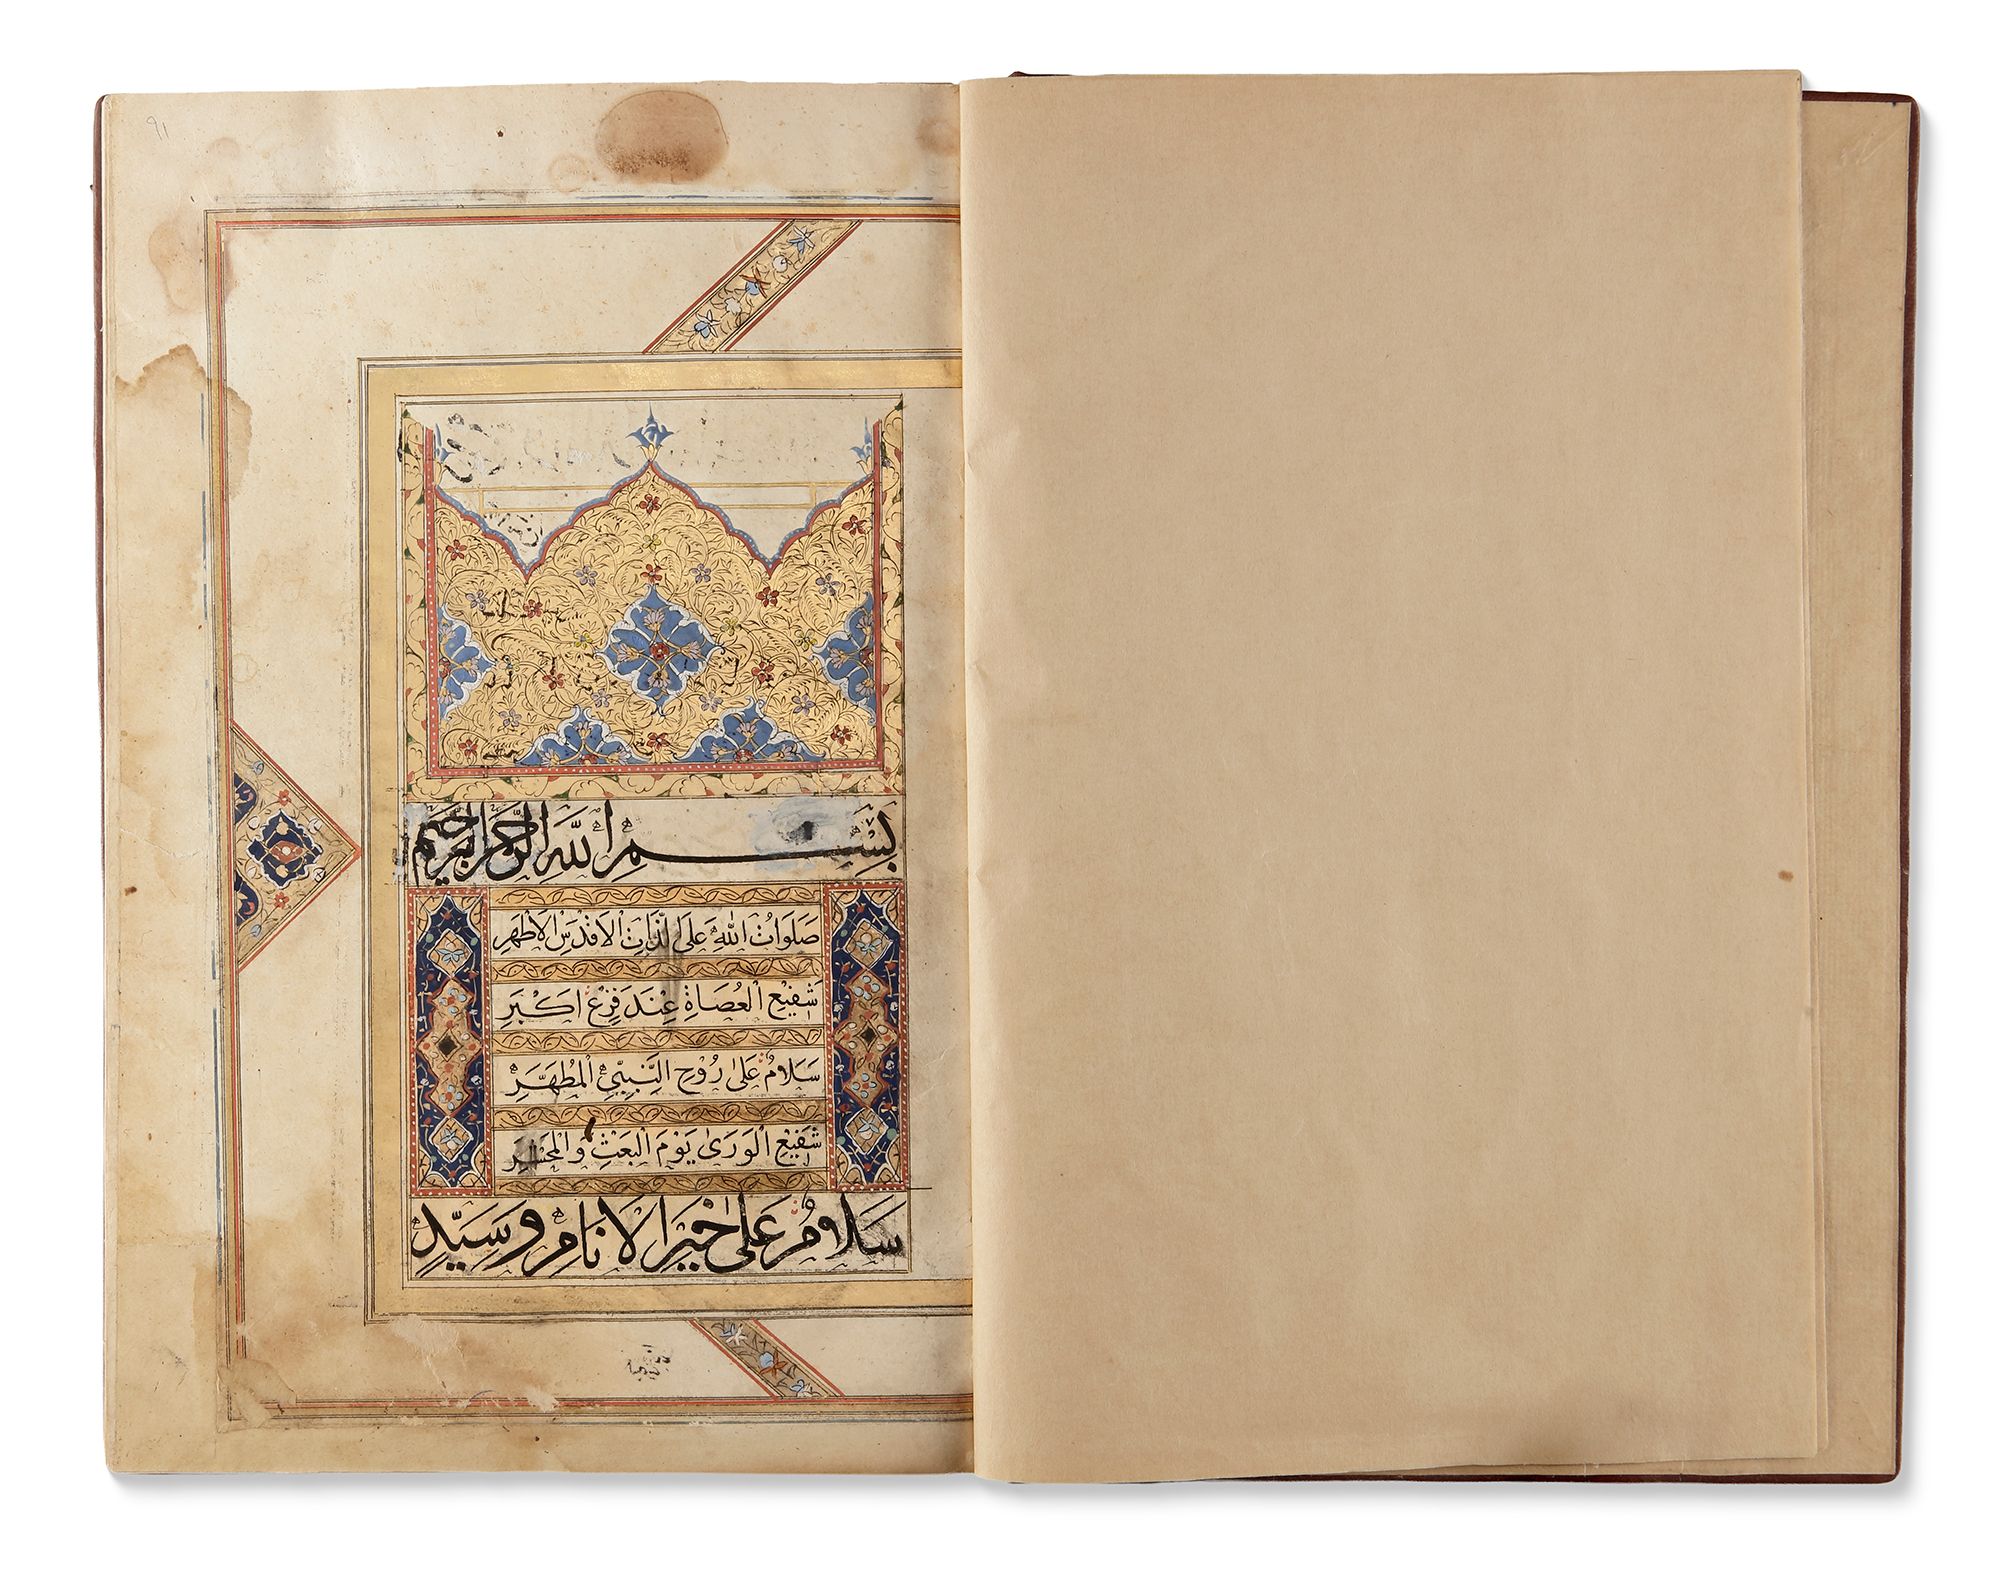 بِسْمِ اللّٰهِ الرَّحْمٰنِ الرَّحِيمِ
صَلَوَاتُ اللّٰهِ عَلَى الذَّاتِ الْاَقْدَسِ الْاَطْهَرِ
شَفِيْعِ الْعُصَاةِ عِنْدَ فَزَعٍ اَكْبَرِ
سَلَامٌ عَلٰى رُوْحِ النَّبِيِّ الْمُطَهَّرِ
شَفِيْعِ الْوَرٰى يَوْمَ الْبَعْثِ وَالْمَحْشَرِ
سَلَامٌ عَلٰى خَيْرِ الْاَنَامِ وَسَيِّدِ